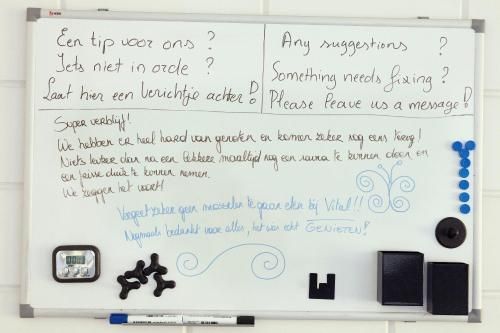 Een tip voor ons ?
Iets niet in orde ?
Laat hier een berichtje achter !
Any suggestions ?
Something needs fixing ?
Please leave us a message !
Super verblijf!
We hebben er heel hard van genoten en komen zeker nog eens terug!
Niets lekker dan na een lekkere maaltijd nog een sauna te kunnen doen en
een fijne duik te kunnen nemen.
We zeggen het voort!
Vergeet zeker geen mosselen te gaan eten bij Vital!!
Nogmaals bedankt voor alles, het was echt GENIETEN!